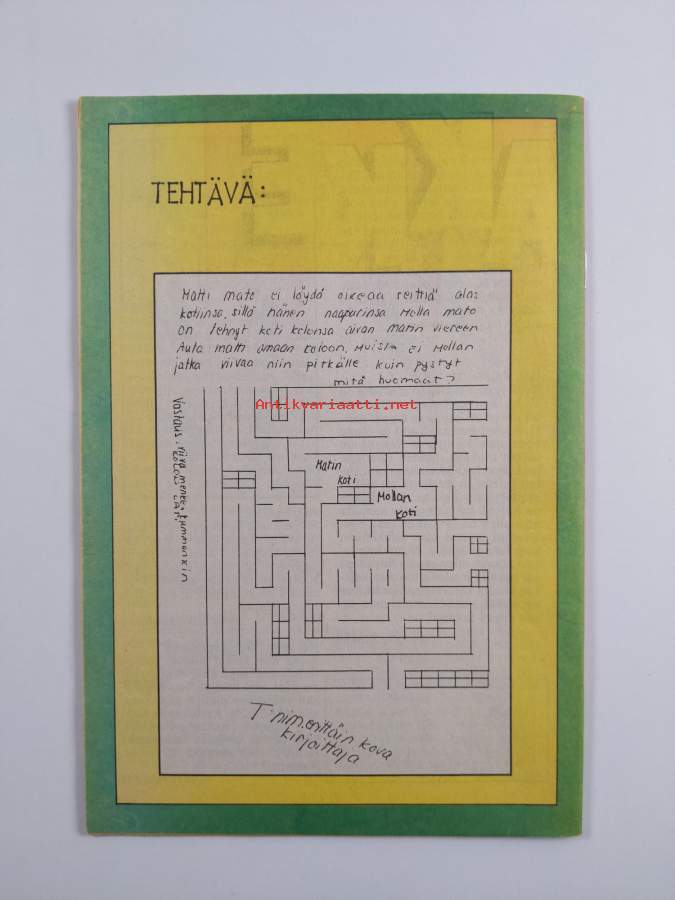 TEHTÄVÄ:
Matti mato ei löydä oikeaa reittiä ala=
kotiinsa, sillä hänen naapurinsa Molla mato
on tehnyt koti kolonsa aivan matin viereen
Auta matti omaan koloon, muista ei Mollan
jatka viivaa niin pitkälle kuin pystyt
mitä huomaat?
Antikvariaatti.net
Vastaus. viiva menee
Matin
koti
Mollan
koti
T: nimenttäin kova
kirjoittaja